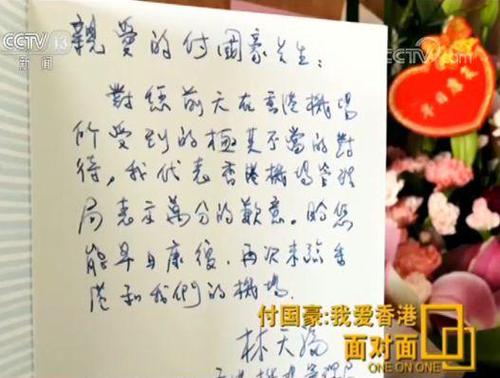 CCTV 13
新闻
CCTV.com
親愛的付國豪先生：
對您前天在香港機場
所受到的極其不當的對
待，我代表香港機場管理
局表示萬分的歉意。盼您
能早日康復，再次來臨香
港和我們的機場.
林天福
早日康復
付国豪:我爱香港
面对面
ONE ON ONE